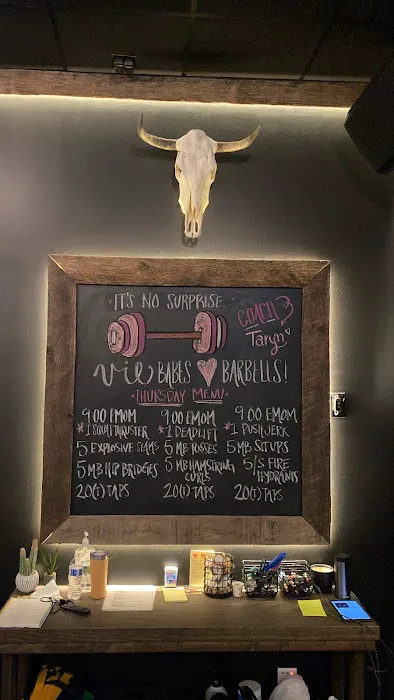 IT'S NO SURPRISE...
COACH
Taryn
vie BABES ♥ BARBELLS!
THURSDAY MENU
9:00 EMOM
*1 SQUAT THRUSTER
5 EXPLOSIVE SLAMS
5 MB HIP BRIDGES
20(t) TAPS
9:00 EMOM
*1 DEADLIFT
5 MB TOSSES
5 MB HAMSTRING
CURLS
20(t) TAPS
9:00 EMOM
*1 PUSH JERK
5 MB SIT UPS
5/5 FIRE
HYDRANTS
20(t) TAPS